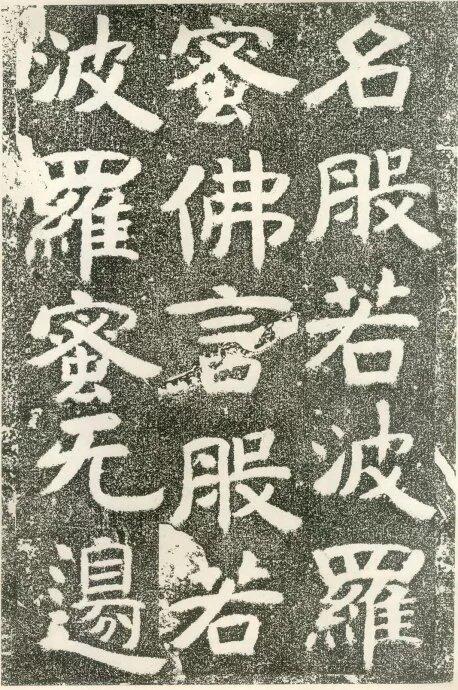 名般若波羅
蜜佛言般若
波羅蜜无邊